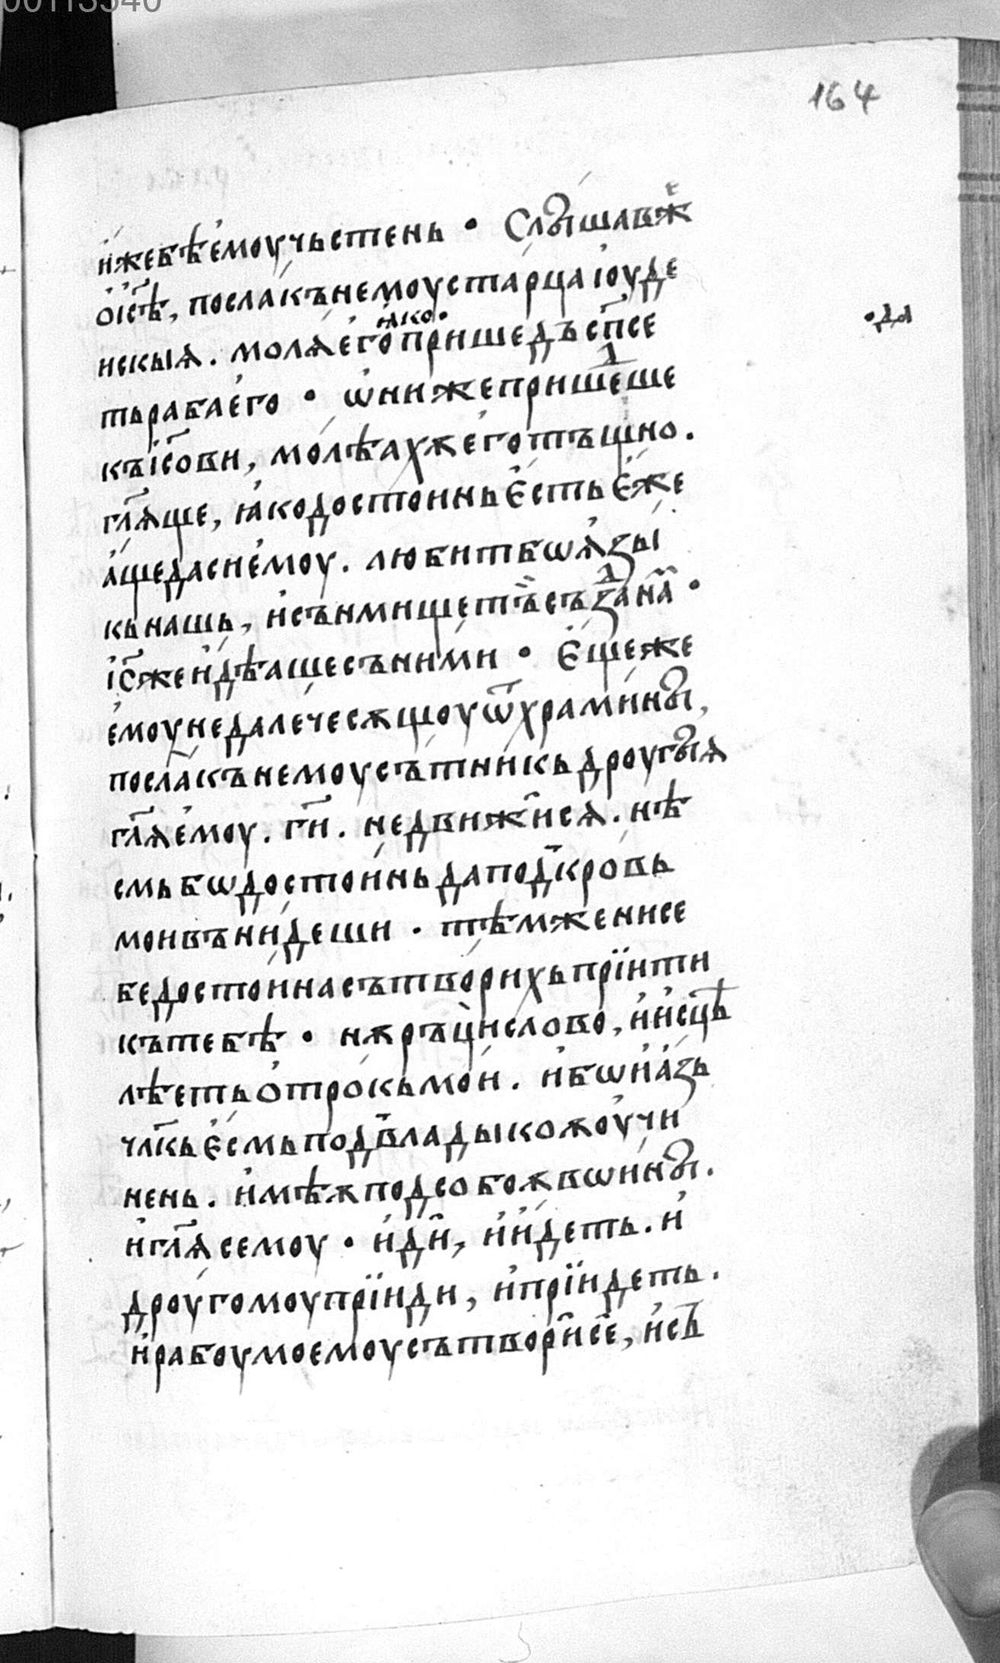 00113540
164
и҆жебѣе҆моучьстень · Слꙑшавже
ої҆с҃ѣ, послакънемоустарцаіоуде
искыѧ. молѧе҆го ꙗко· пришедъсп҃се
·да
тьрабаего · ѡ҆нижепришедше
къіс҃ови, молѣахѫего тъщно.
гл҃ѧще, ꙗкодостоиньє҆стьє҆же
а҆щедасиемоу. любитбѡѧзы
кьнашь, исънмищетъ създанам·
іс҃жеидѣашесъними · Є҆щеже
е҆моунедалечесѫщоуѿхраминꙑ,
послакънемоусътникьдроугꙑѧ
гл҃ѧе҆моу. гг҃и. недвижисѧ. нѣ
смьбѡдостоиньдаподкровь
моивънидеши · тѣмженисе
бедостоинасътворихьпрїити
кътебѣ · нѫръцисловѡ, ии҆сцѣ
лѣетьотрокьмои. ибѡиазь
чл҃кьє҆смьподвладыкоѫоучи
нень. и҆мѣѫподсобоѫвѡинꙑ.
игл҃ѧсемоу · иди, ии҆деть. и҆
дроугомоупрїиди, и҆прїидеть.
и҆рабоумоемоусътворисе, и҆св